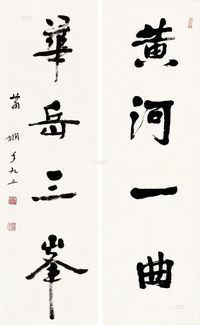 黄河一曲
華岳三峯
蕭嫻年九五